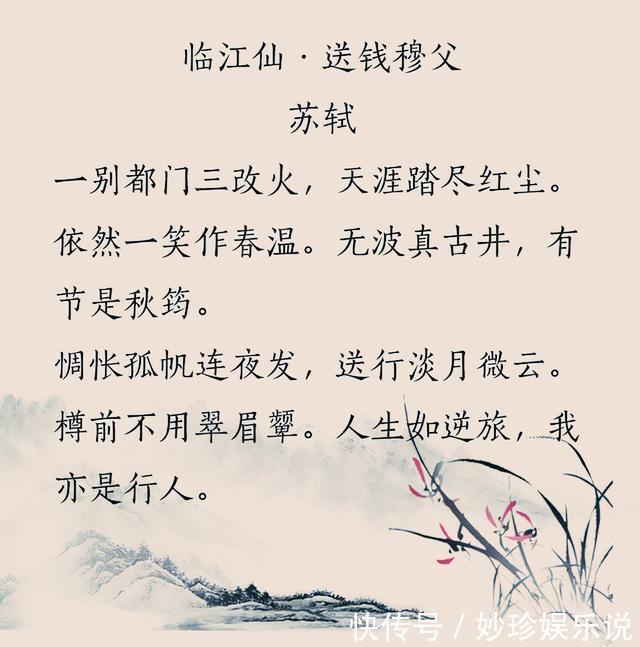 临江仙·送钱穆父
苏轼
一别都门三改火，天涯踏尽红尘。
依然一笑作春温。无波真古井，有
节是秋筠。
惆怅孤帆连夜发，送行淡月微云。
樽前不用翠眉颦。人生如逆旅，我
亦是行人。
快传号/妙珍娱乐说